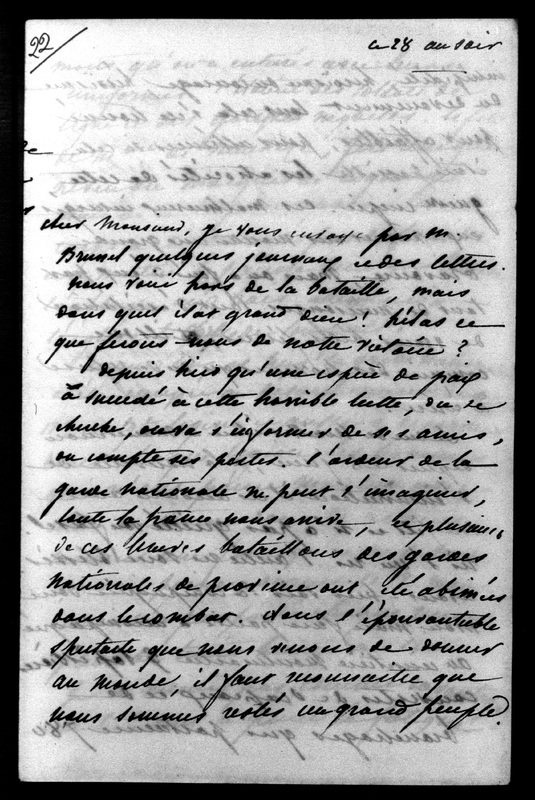 22/
ce 28 au soir
cher Monsieur, je vous envoye par M.
Brunel quelques journaux et des lettres.
nous voici hors de la bataille, mais
dans quel état grand dieu! hélas ce
que ferons-nous de notre victoire?
depuis hier qu'une espèce de paix
a succédé à cette horrible lutte, on se
cherche, on va s'informer de ses amis,
on compte ses pertes. l'ardeur de la
garde nationale ne peut s'imaginer,
toute la france nous arrive, et plusieurs
de ces braves bataillons des gardes
nationales de province ont été abimés
dans le combat. dans l'épouvantable
spectacle que nous venons de donner
au monde, il faut reconnaitre que
nous sommes restés un grand peuple.